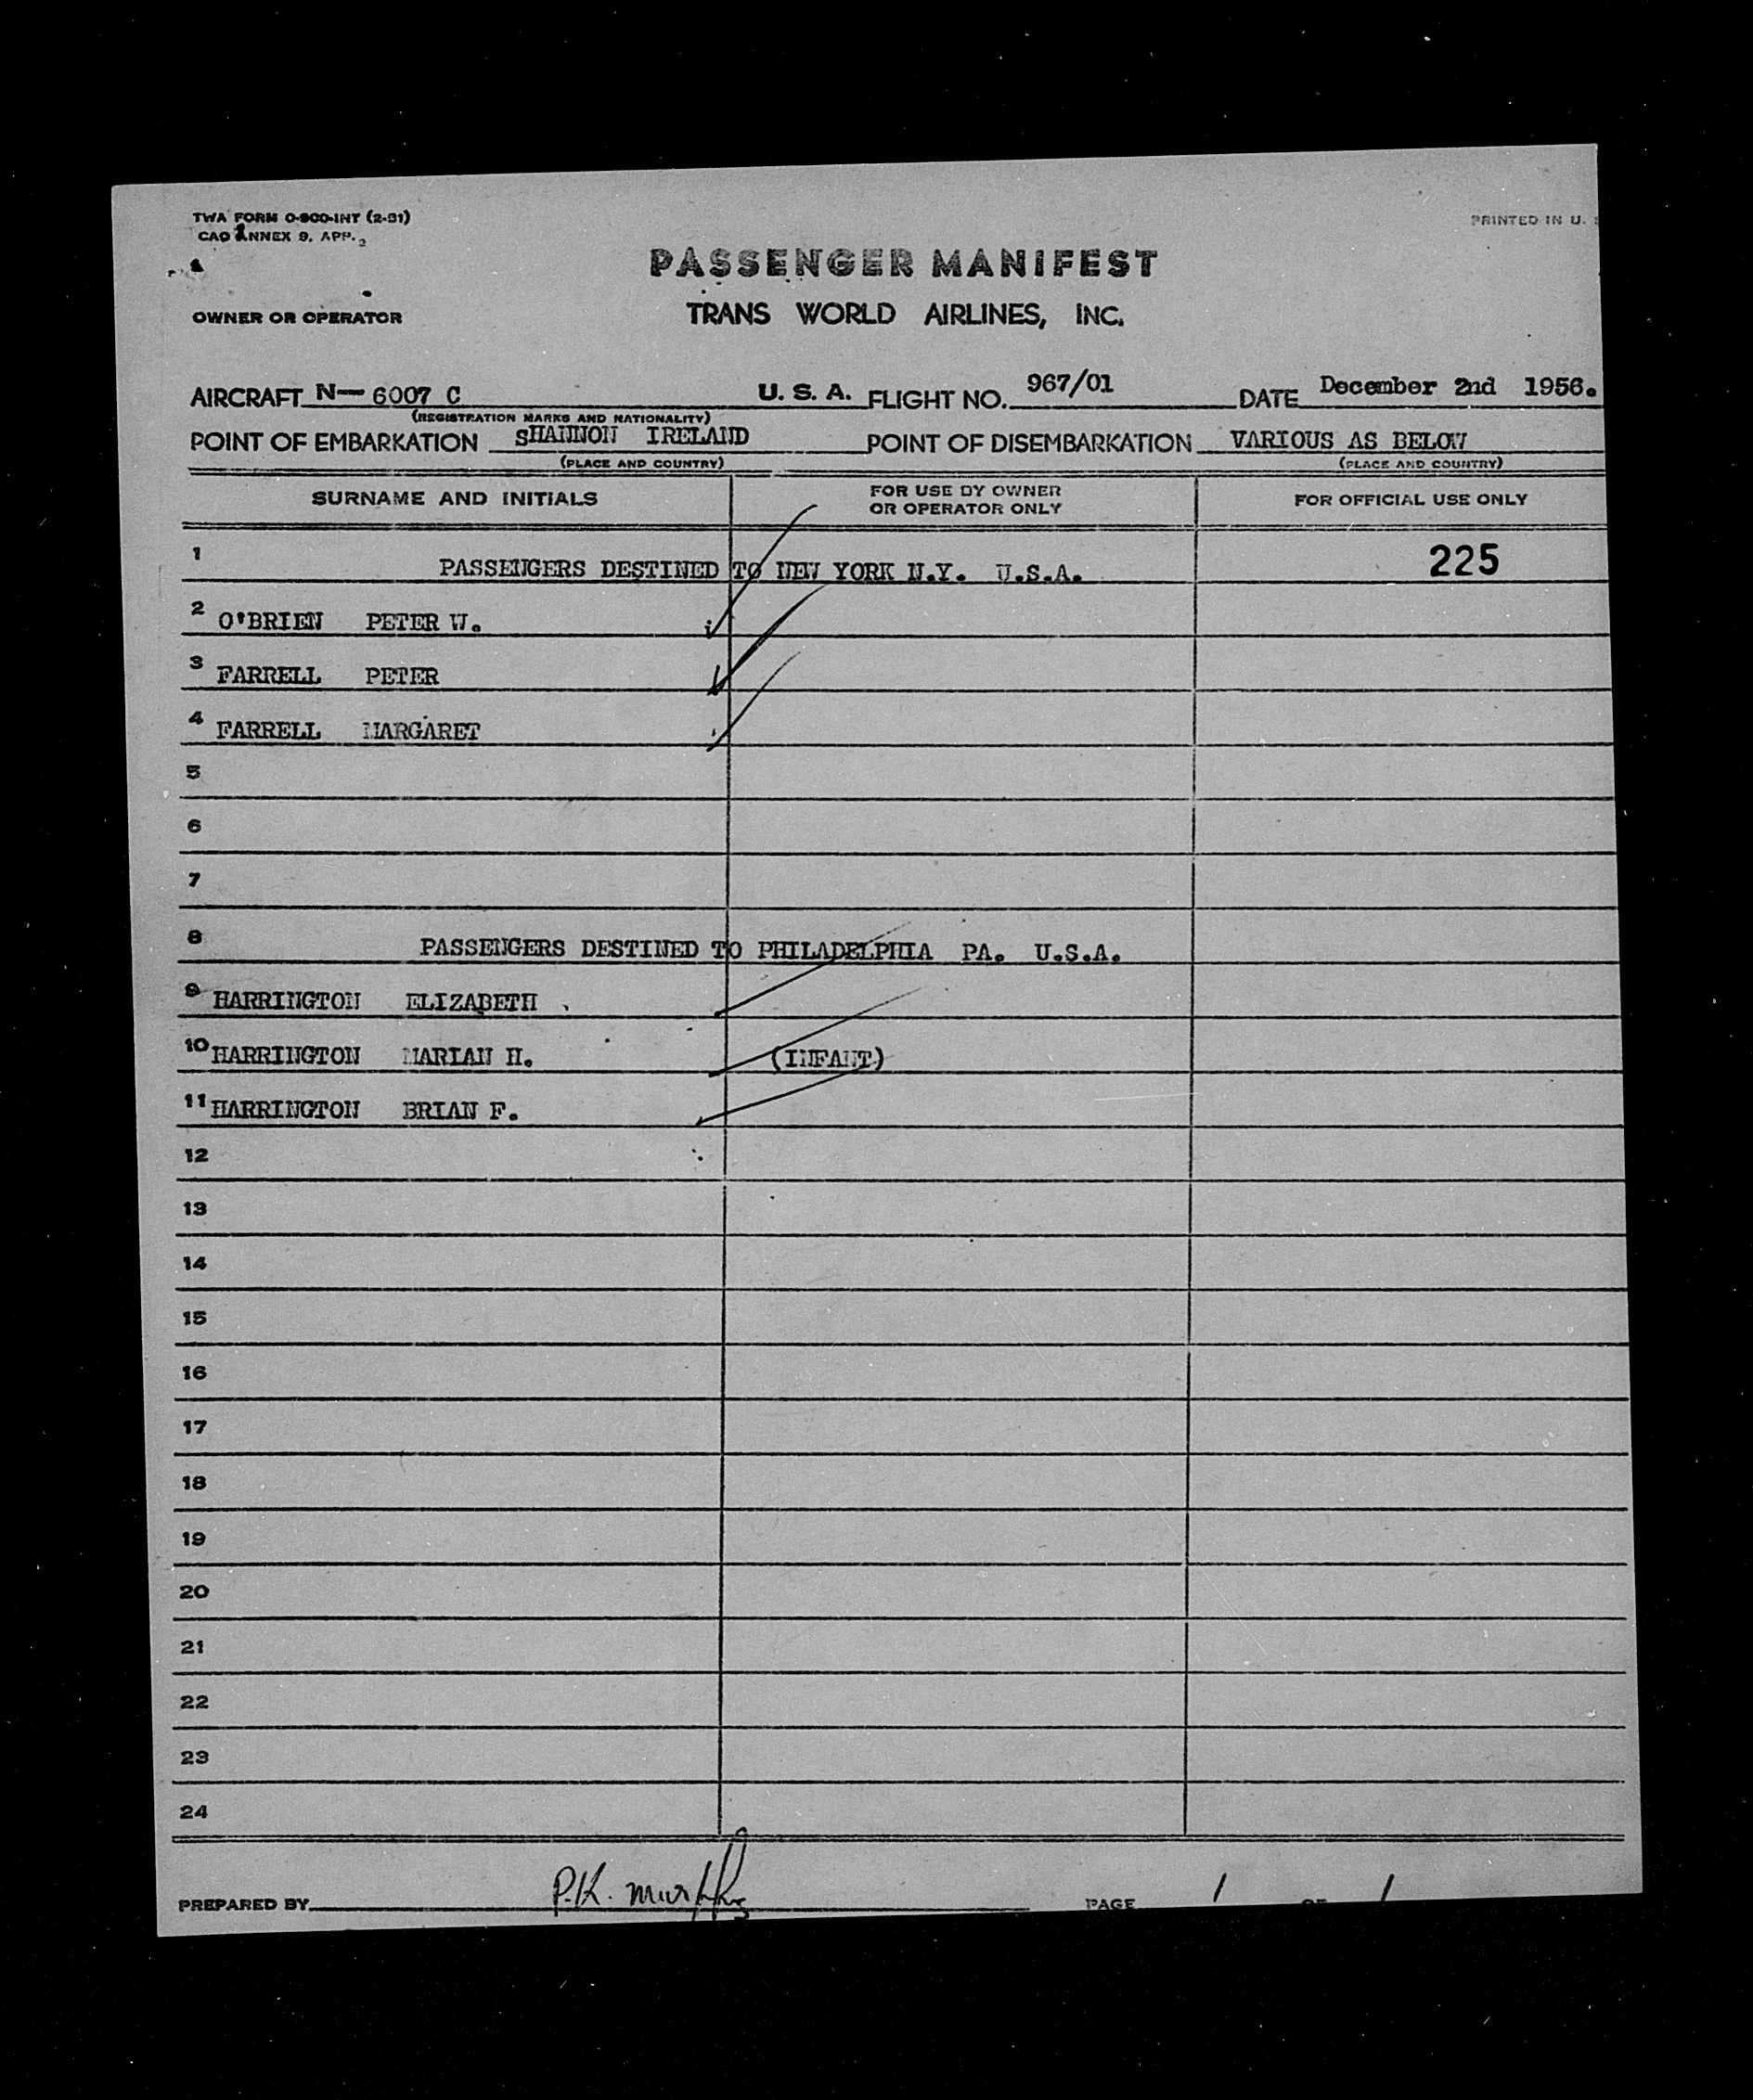 TWA FORM O-800-INT (2-51)
CAO ANNEX 9, APP. 2
PRINTED IN U.
PASSENGER MANIFEST
OWNER OR OPERATOR TRANS WORLD AIRLINES, INC.
AIRCRAFT N— 6007 C U. S. A. FLIGHT NO. 967/01 DATE December 2nd 1956.
(REGISTRATION MARKS AND NATIONALITY)
POINT OF EMBARKATION SHANNON IRELAND POINT OF DISEMBARKATION VARIOUS AS BELOW
(PLACE AND COUNTRY) (PLACE AND COUNTRY)
SURNAME AND INITIALS FOR USE BY OWNER OR OPERATOR ONLY FOR OFFICIAL USE ONLY
1 PASSENGERS DESTINED TO NEW YORK N.Y. U.S.A. 225
2 O'BRIEN PETER W.
3 FARRELL PETER
4 FARRELL MARGARET
5
6
7
8 PASSENGERS DESTINED TO PHILADELPHIA PA. U.S.A.
9 HARRINGTON ELIZABETH
10 HARRINGTON MARIAN H. (INFANT)
11 HARRINGTON BRIAN F.
12
13
14
15
16
17
18
19
20
21
22
23
24
PREPARED BY P.K. Murphy PAGE 1 OF 1